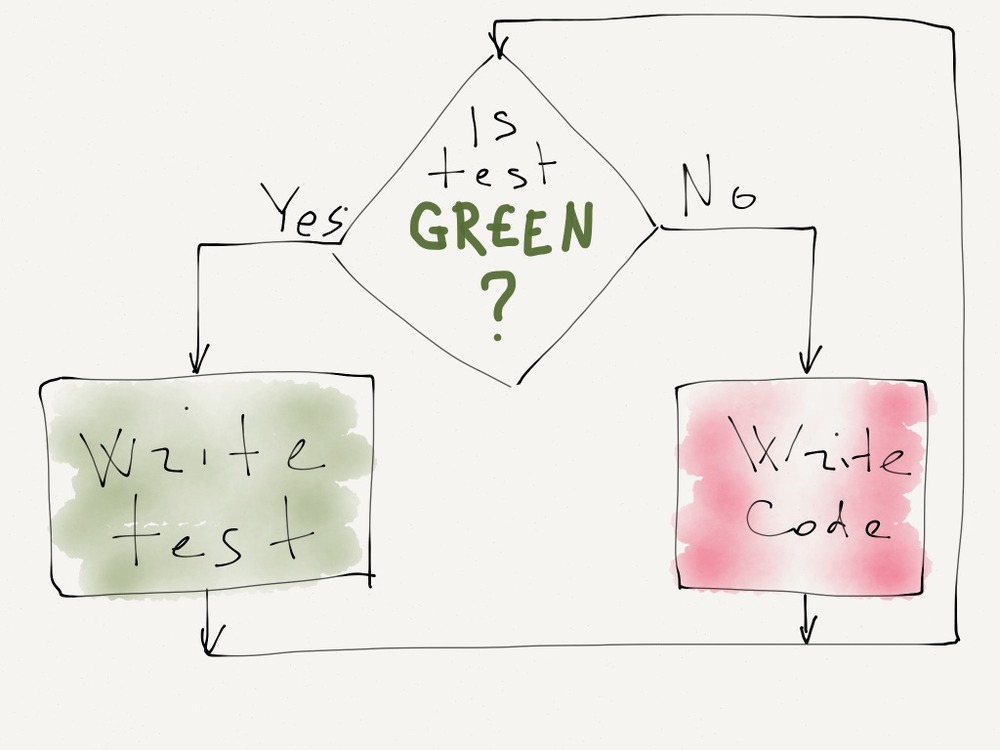 Is
test
GREEN
?
Yes
No
Write
test
Write
Code